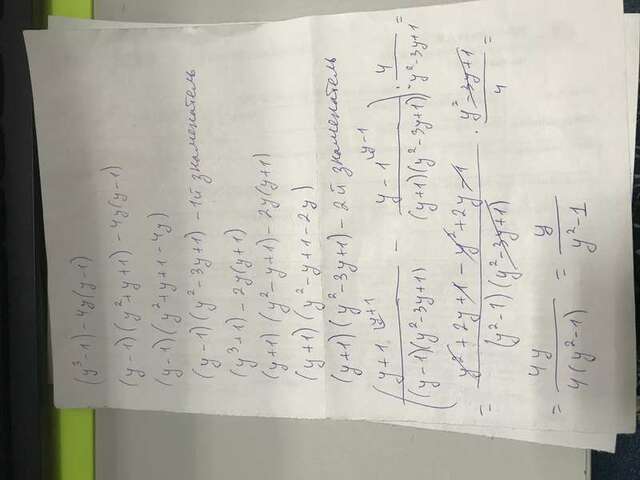 (y³-1)-4y(y-1)
(y-1)(y²+y+1)-4y(y-1)
(y-1)(y²+y+1-4y)
(y-1)(y²-3y+1)-1й знаменатель
(y³+1)-2y(y+1)
(y+1)(y²-y+1)-2y(y+1)
(y+1)(y²-y+1-2y)
(y+1)(y²-3y+1)-2й знаменатель
((y+1 (y+1)/((y-1)(y²-3y+1)) - (y-1 (y-1)/((y+1)(y²-3y+1))) : 4/(y²-3y+1) =
= (y²+2y+1-y²+2y-1)/((y²-1)(y²-3y+1)) · (y²-3y+1)/4 =
= 4y/(4(y²-1)) = y/(y²-1)